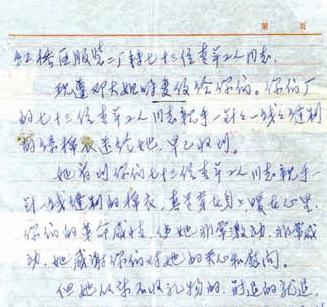 第 页
红桥区服装二厂转七十三位青年工人同志:
现遵邓大姐嘱复信给你们。你们厂
的七十三位青年工人同志亲手一针一线缝制
的棉衣送给她,早已收到。
她看到你们七十三位青年工人同志亲手一
针一线缝制的棉衣,真是穿在身上,暖在心里,
你们的革命感情,使她非常激动,非常感
动,她感谢你们对她的关心和慰问。
但她从来不收礼物的,